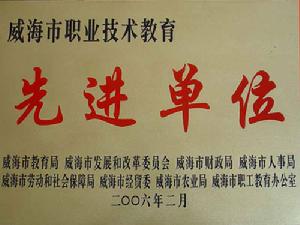 威海市职业技术教育
先进单位
威海市教育局 威海市发展和改革委员会 威海市财政局 威海市人事局
威海市劳动和社会保障局 威海市经贸委 威海市农业局 威海市职工教育办公室
二〇〇六年二月